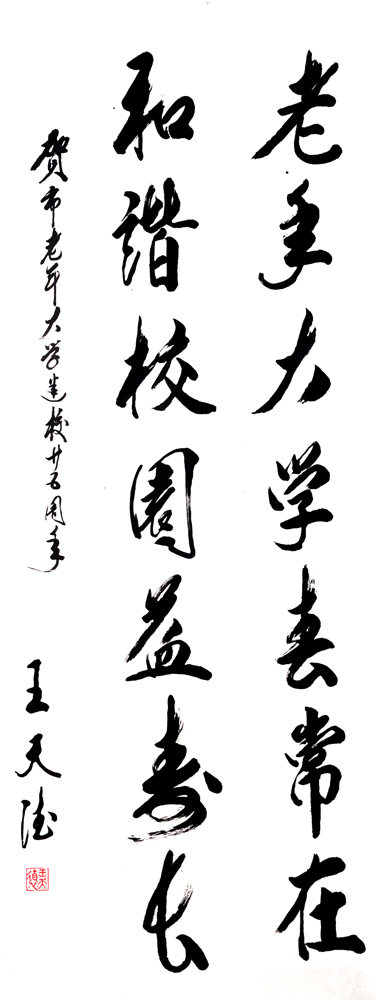 老年大学春常在
和谐校园益寿长
贺市老年大学建校廿五周年
王天德